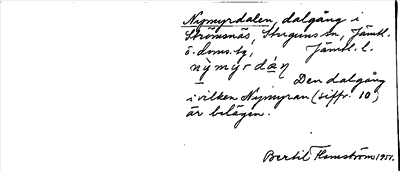 Nymyrdalen, dalgång i
Strömsnäs, Stuguns sn, Jämtl.
ö. doms.tg, Jämtl. l.
nỳmyrdáṇ
Den dalgång
i vilken Nymyran (siffr. 10)
är belägen.
Bertil Flemström 1951.